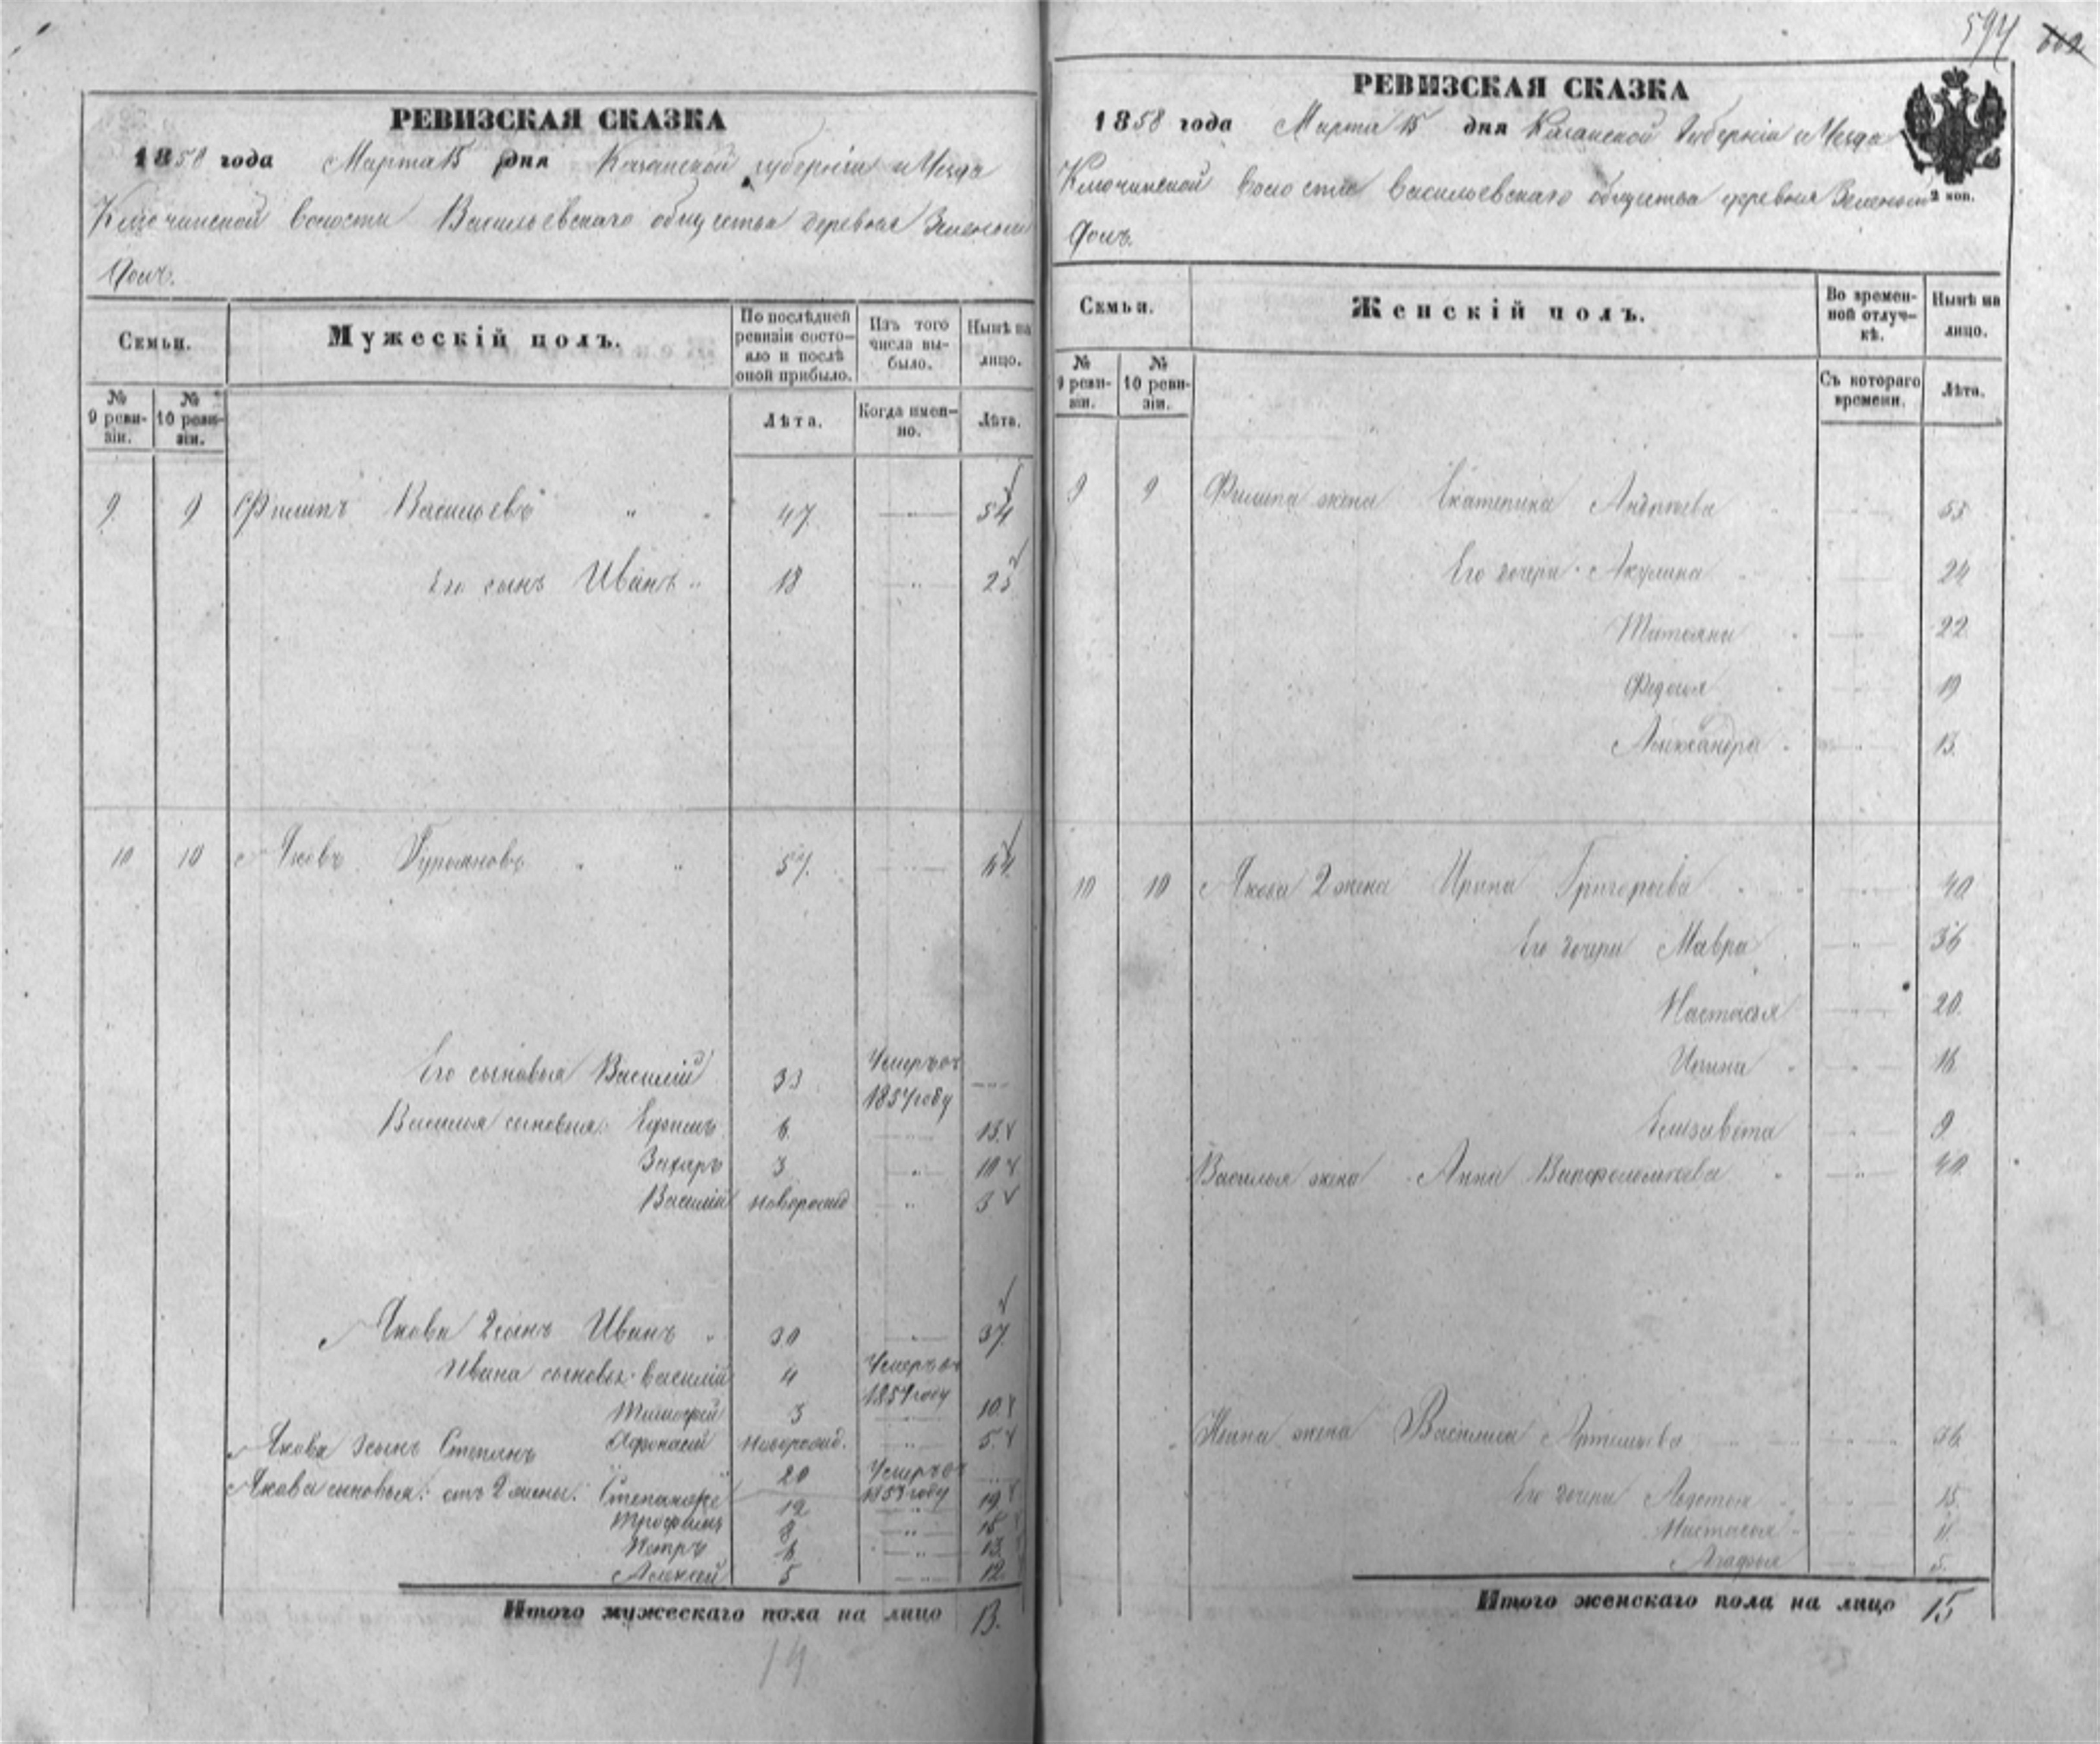 594 602
РЕВИЗСКАЯ СКАЗКА
1858 года Марта 15 дня Казанской губернiи и Уезда
Ключинской волости Васильевскаго общества деревня Зеленый
Долъ.
Семьи.
Мужескій полъ.
По послѣдней ревизіи состояло и послѣ оной прибыло.
Изъ того числа выбыло.
Нынѣ на лицо.
№ 9 ревизіи.
№ 10 ревизіи.
Лѣта.
Когда именно.
Лѣта.
9 9 Филипъ Васильевъ " 47 54
Его сынъ Иванъ 18 25
10 10 Яковъ 57 64
Его сыновья Василій 33 Умеръ въ 1854 году
Василья сыновья: Ефимъ 6 13
Захаръ 3 10
Василій новорожд 3
Якова 2 сынъ Иванъ 30 37
Ивана сыновья Василій 4 Умеръ въ 1854 году
Тимофей 3 10
Афонасий новорожд. 5
Якова 3 сынъ Степанъ 20 Умеръ въ 1853 году
Якова сыновья: отъ 2 жены: Степанъ же 12 19
Трофимъ 8 15
Петръ 6 13
Алексей 5 12
Итого мужескаго пола на лицо 13.
14
РЕВИЗСКАЯ СКАЗКА
1858 года Марта 15 дня Казанской Губернiи и Уезда
Ключинской волости Васильевскаго общества деревня Зеленый
Долъ.
2 коп.
Семьи.
Женскій полъ.
Во временной отлучкѣ.
Нынѣ на лицо.
№ 9 ревизіи.
№ 10 ревизіи.
Съ котораго времени.
Лѣта.
9 9 Филипа жена Екатерина Андреева 53
Его дочери Акулина 24
Татьяна 22
Федосья 19
Александра 13.
10 10 Якова 2 жена Ирина Григорьева 40
Его дочери Мавра 36
Настасья 20.
16
Елизавета 9
Василья жена Анна Варфоломеева 40
Ивана жена Василиса Артемьева 36
Его дочери 15.
Настасья 11
Агафья 5
Итого женскаго пола на лицо 15